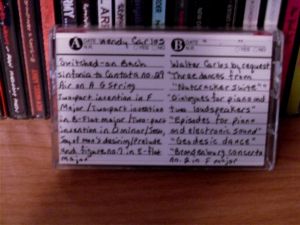 A DATE Wendy Carlos
N.R. YES NO
B DATE
N.R. YES NO
Switched-on Bach
Sinfonia to Cantata no. 29
Air on A G String
Two-part invention in F
Major / Two-part invention
in B-flat major / two-part
invention in D minor / Jesu,
Joy of man's desiring / Prelude
and fugue no. 7 in E-flat
major
Walter Carlos by request
"Three dances from
"Nutcracker Suite""
"Dialogues for piano and
two loudspeakers"
"Episodes for piano
and electronic sound"
"Geodesic dance"
"Brandenburg concerto
no. 2 in F major